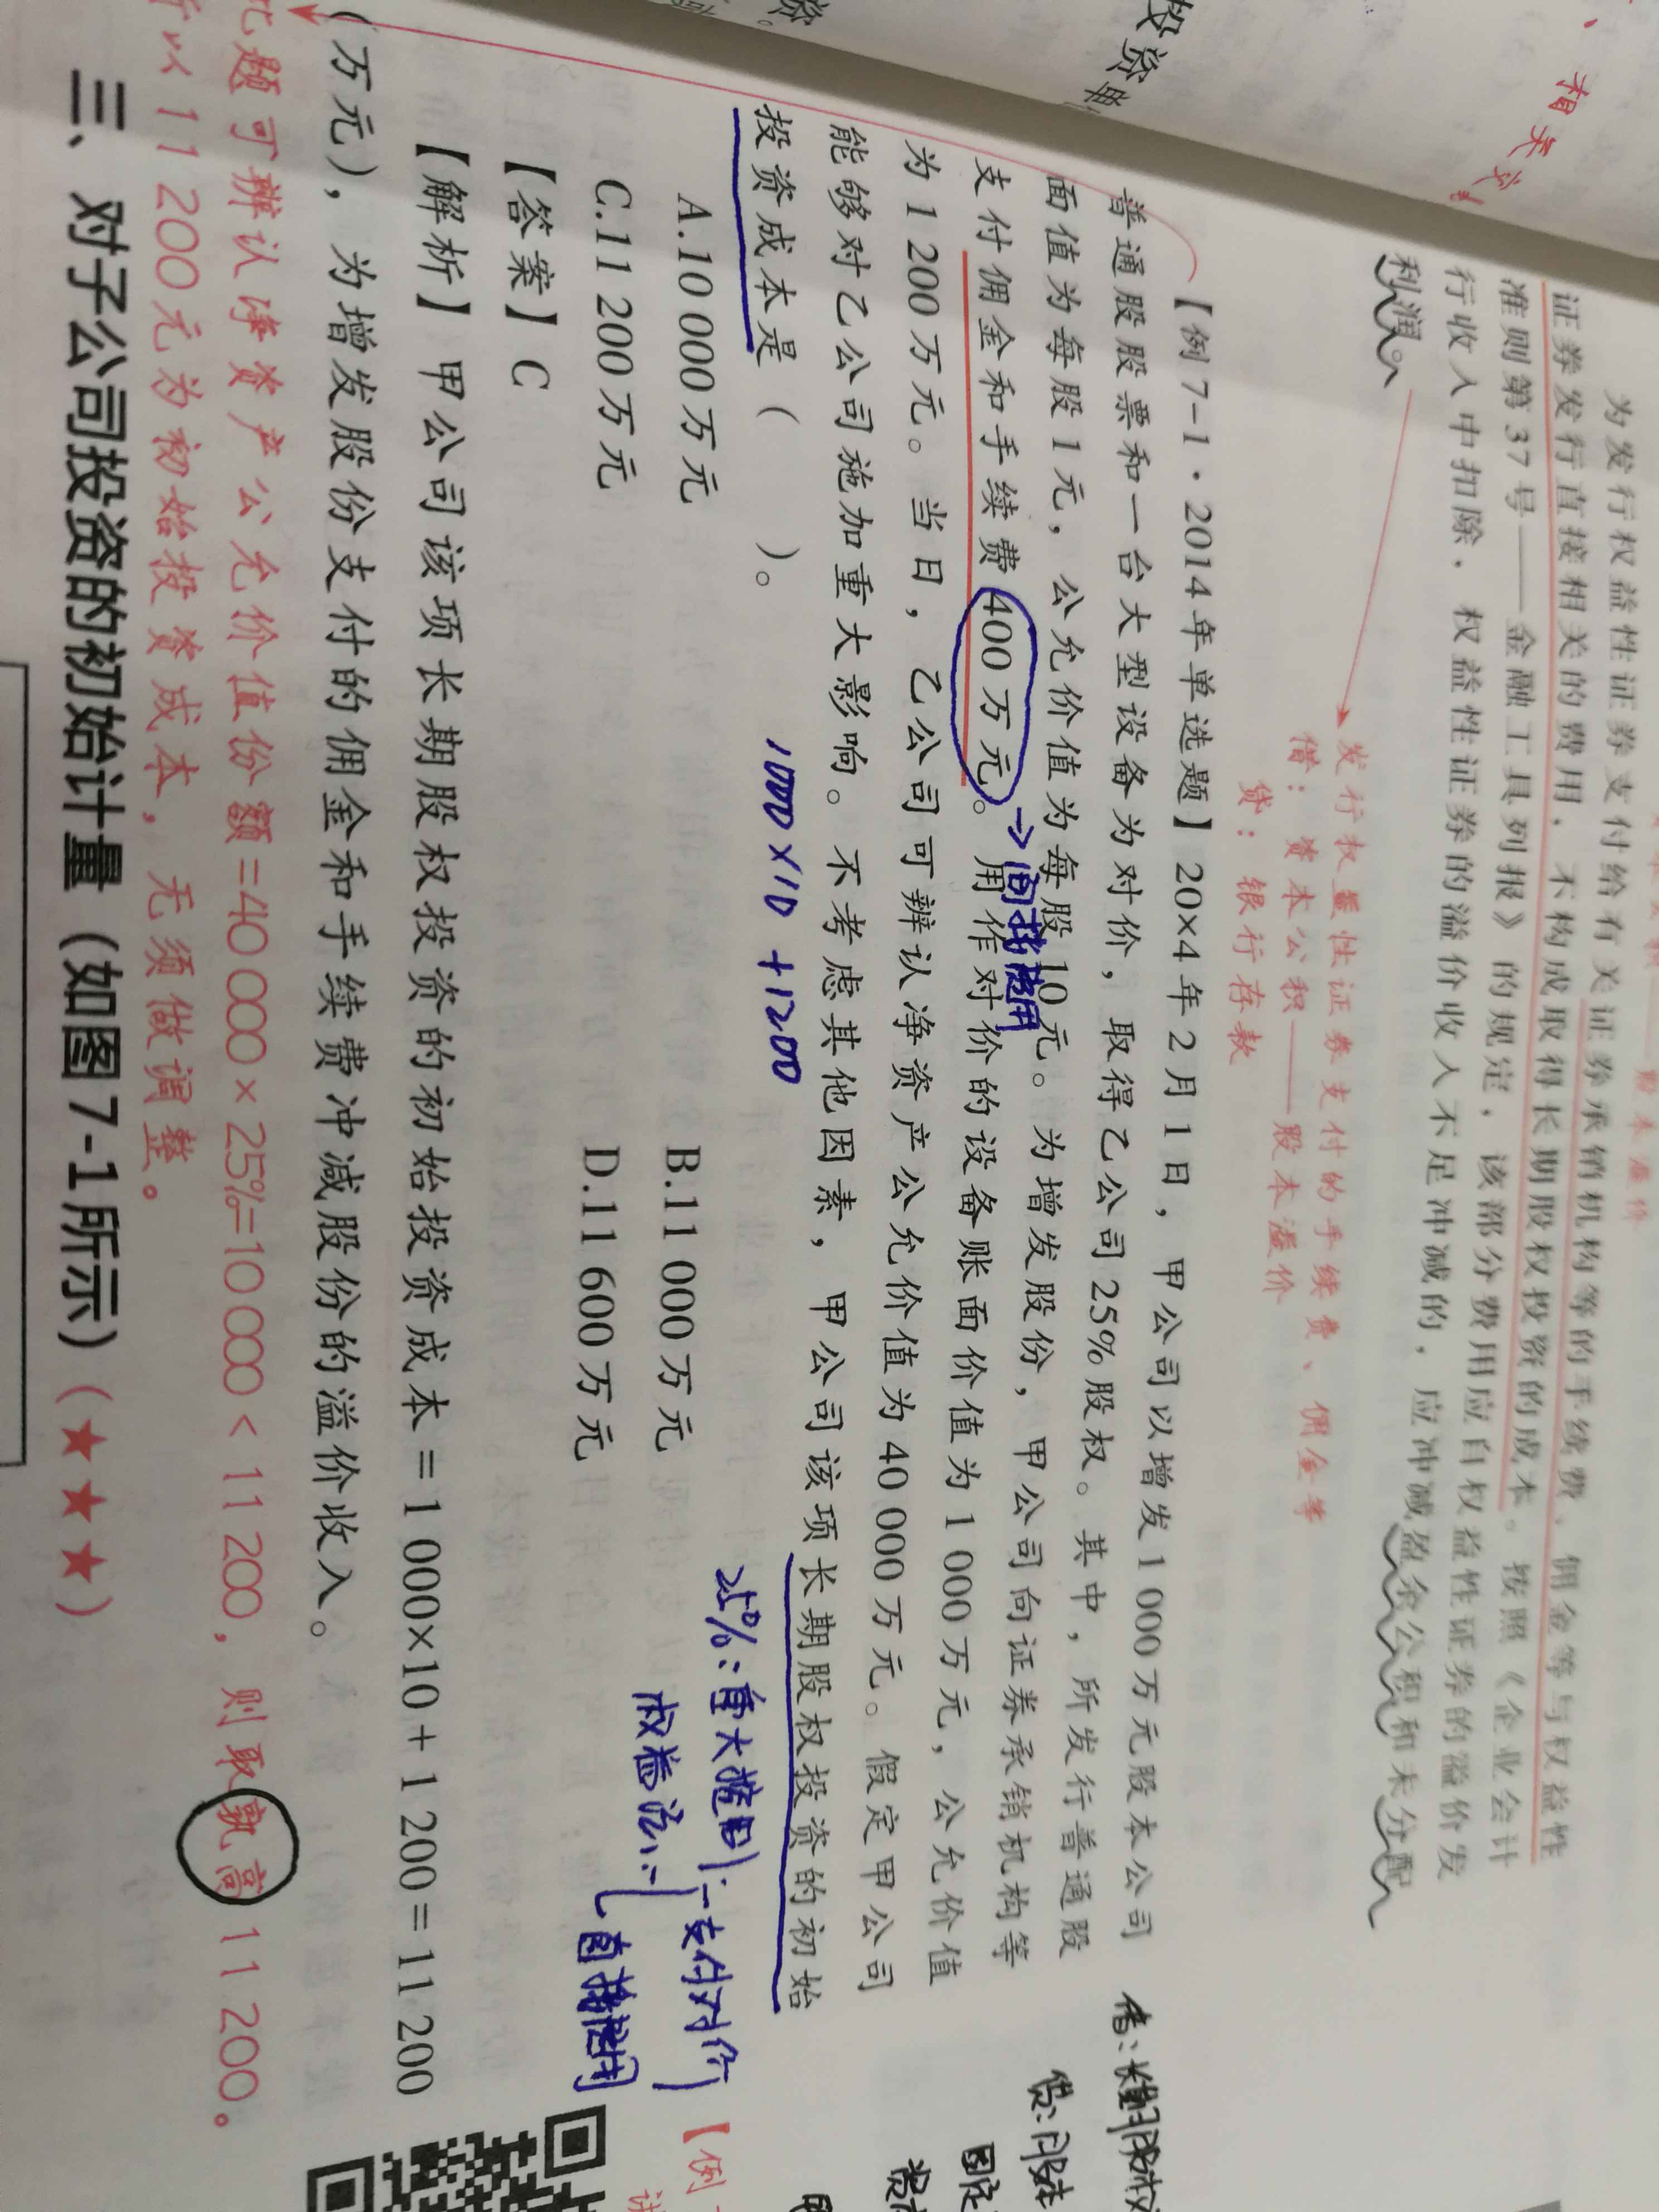 相关交
投资
为发行权益性证券支付给有关证券承销机构等的手续费、佣金等与权益性
证券发行直接相关的费用，不构成取得长期股权投资的成本。按照《企业会计
准则第37号——金融工具列报》的规定，该部分费用应自权益性证券的溢价发
行收入中扣除，权益性证券的溢价收入不足冲减的，应冲减盈余公积和未分配
利润。
发行权益性证券支付的手续费、佣金等
借：资本公积——股本溢价
贷：银行存款
【例7-1·2014年单选题】20×4年2月1日，甲公司以增发1 000万元股本公司
普通股股票和一台大型设备为对价，取得乙公司25%股权。其中，所发行普通股
面值为每股1元，公允价值为每股10元。为增发股份，甲公司向证券承销机构等
支付佣金和手续费400万元。用作对价的设备账面价值为1 000万元，公允价值
→间接费用
为1 200万元。当日，乙公司可辨认净资产公允价值为40 000万元。假定甲公司
能够对乙公司施加重大影响。不考虑其他因素，甲公司该项长期股权投资的初始
投资成本是（ ）。
1000×10 +1200
A.10 000万元
B.11 000万元
C.11 200万元
D.11 600万元
25%：重大
权益法
支付对价
直接费用
【答案】C
【解析】甲公司该项长期股权投资的初始投资成本＝1 000×10＋1 200＝11 200
（万元），为增发股份支付的佣金和手续费冲减股份的溢价收入。
此题可辨认净资产公允价值份额=40 000×25%=10 000<11 200，则取孰高11 200。
所以11 200元为初始投资成本，无须做调整。
三、对子公司投资的初始计量（如图7-1所示）（★★★）
【例